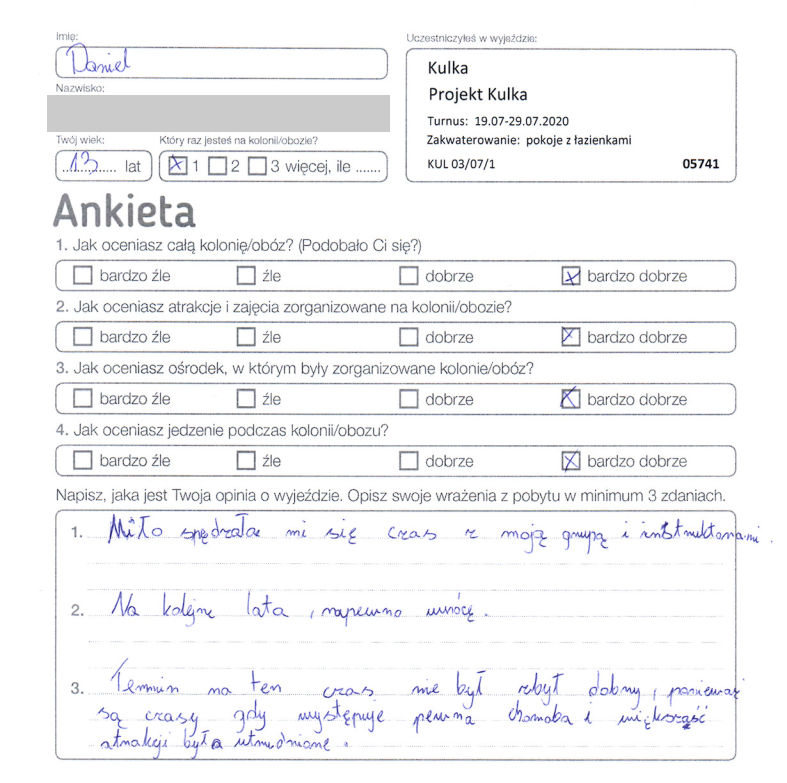 Imię:
Daniel
Nazwisko:
Twój wiek:
13 lat
Który raz jesteś na kolonii/obozie?
1 2 3 więcej, ile .......
Uczestniczyłeś w wyjeździe:
Kulka
Projekt Kulka
Turnus: 19.07-29.07.2020
Zakwaterowanie: pokoje z łazienkami
KUL 03/07/1 05741
Ankieta
1. Jak oceniasz całą kolonię/obóz? (Podobało Ci się?)
bardzo źle źle dobrze bardzo dobrze
2. Jak oceniasz atrakcje i zajęcia zorganizowane na kolonii/obozie?
bardzo źle źle dobrze bardzo dobrze
3. Jak oceniasz ośrodek, w którym były zorganizowane kolonie/obóz?
bardzo źle źle dobrze bardzo dobrze
4. Jak oceniasz jedzenie podczas kolonii/obozu?
bardzo źle źle dobrze bardzo dobrze
Napisz, jaka jest Twoja opinia o wyjeździe. Opisz swoje wrażenia z pobytu w minimum 3 zdaniach.
1. Miło spędzała mi się czas z moją grupą i instruktorami.
2. Na kolejne lata, napewno wrócę.
3. Termin na ten czas nie był zbyt dobry, ponieważ
są czasy gdy występuje pewna choroba i większość
atrakcji była utrudnione.